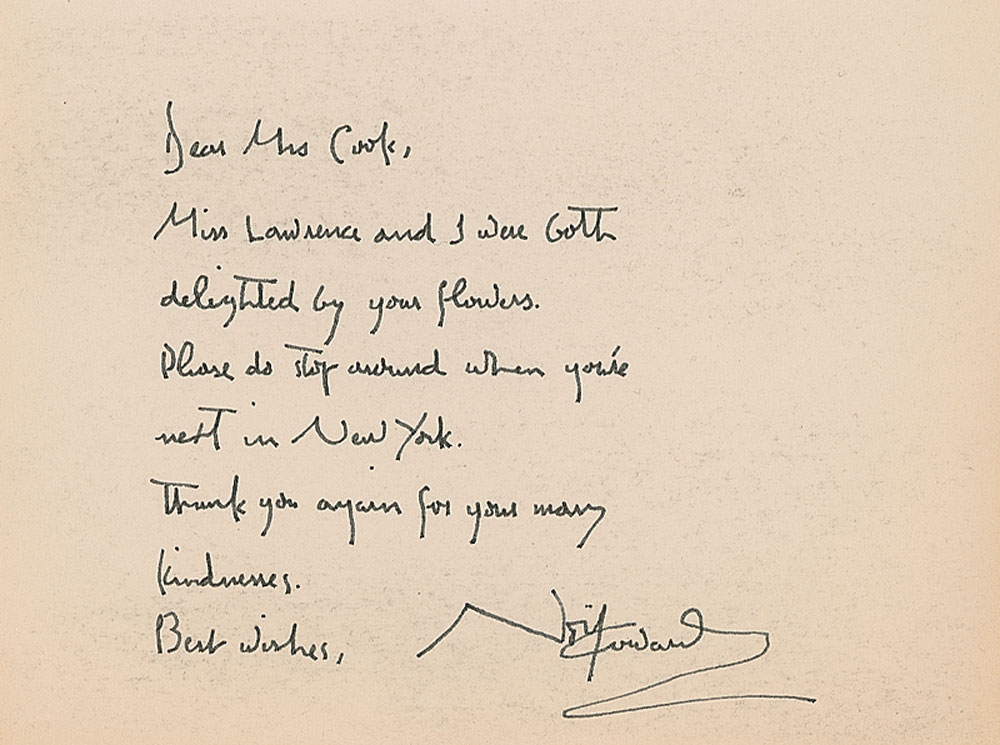 Dear Mrs Cook,
Miss Lawrence and I were both
delighted by your flowers.
Please do stop around when you're
next in New York.
Thank you again for your many
kindnesses.
Best wishes, Noël Coward